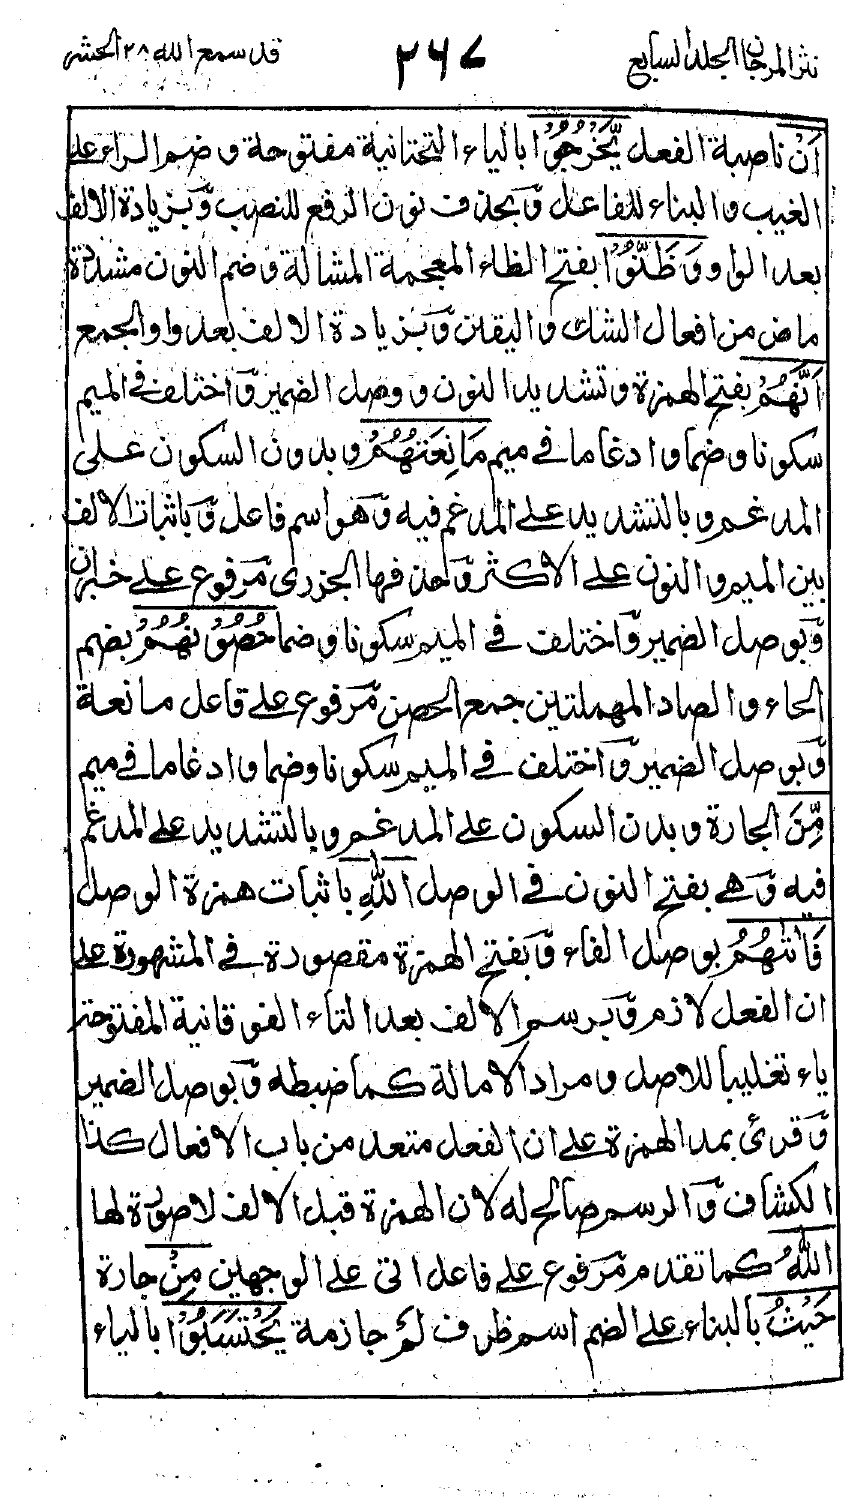 نثر المرجان الجلد السابع ٢٦٧ قد سمع الله ٢٨ الحشر
اَنْ ناصبة الفعل يَّخْرُجُوْا بالياء التحتانية مفتوحة و ضم الراء على
الغيب و البناء للفاعل وَّ بحذف نون الرفع للنصب وَّ بزيادة الالف
بعد الواو وَ ظَنُّوْٓا بفتح الظاء المعجمة المشالة و ضم النون مشددة
ماض من افعال الشك و اليقين وَّ بزيادة الالف بعد واو الجمع
اَنَّهُمْ بفتح الهمزة و تشديد النون و وصل الضمير وَّ اختلف فى الميم
سكونا و ضما و ادغاما فى ميم مَانِعَتُهُمْ و بدون السكون على
المدغم و بالتشديد على المدغم فيه وَّ هو اسم فاعل وَّ باثبات الالف
بين الميم و النون على الاكثر وَّ حذفها الجزرى مَّرفوع على خبر ان
وَّ بوصل الضمير وَّ اختلف فى الميم سكونا و ضما حُصُوْنُهُمْ بضم
الحاء و الصاد المهملتين جمع الحصن مَّرفوع على فاعل مانعة
وَّ بوصل الضمير وَّ اختلف فى الميم سكونا و ضما و ادغاما فى ميم
مِّنَ الجارة و بدن السكون على المدغم و بالتشديد على المدغم
فيه وَّ هى بفتح النون فى الوصل اللّٰهِ باثبات همزة الوصل
فَاَتٰىهُمُ بوصل الفاء وَّ بفتح الهمزة مقصودة فى المشهورة على
ان الفعل لازم وَّ برسم الالف بعد التاء الفوقانية المفتوحة
ياء تغليبا للاصل و مراد الامالة كما ضبطه وَّ بوصل الضمير
وَّ قرئ بمد الهمزة على ان الفعل متعد من باب الافعال كذا
الكشاف وَّ الرسم صالح له لان الهمزة قبل الالف لا صورة لها
اللّٰهُ كما تقدم مَّرفوع على فاعل اتى على الوجهين مِنْ جارة
حَيْثُ بالبناء على الضم اسم ظرف لَمْ جازمة يَحْتَسِبُوْا بالياء